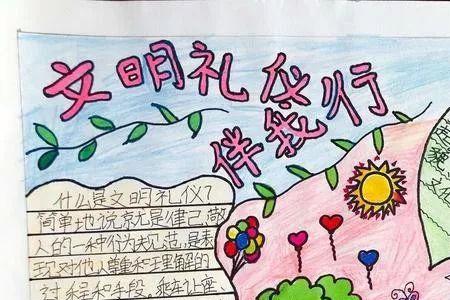 文明礼仪
伴我行
什么是文明礼仪？
简单地说，就是律己、敬
人的一种行为规范，是表
现对他人尊重和理解的
过程和手段。乘车让座、